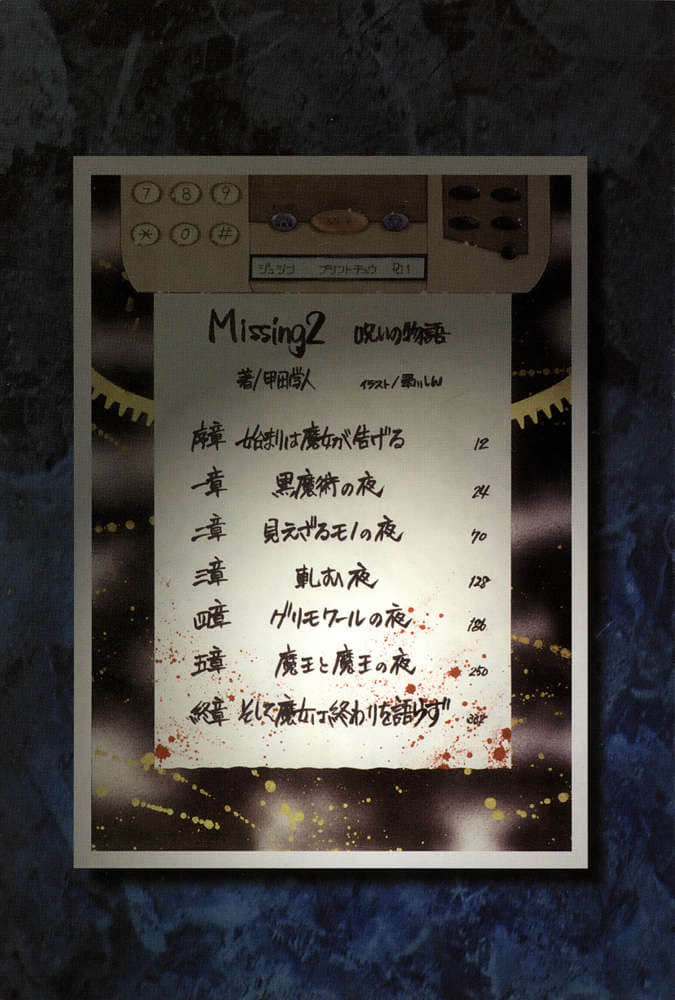 7 8 9
* 0 #
ジュシン プリントチュウ P01
Missing2 呪いの物語
著/甲田学人 イラスト/翠川しん
序章 始まりは魔女が告げる 12
一章 黒魔術の夜 24
二章 見えざるモノの夜 70
三章 軋む夜 128
四章 グリモワールの夜 186
五章 魔王と魔王の夜 250
終章 そして魔女は終わりを語らず